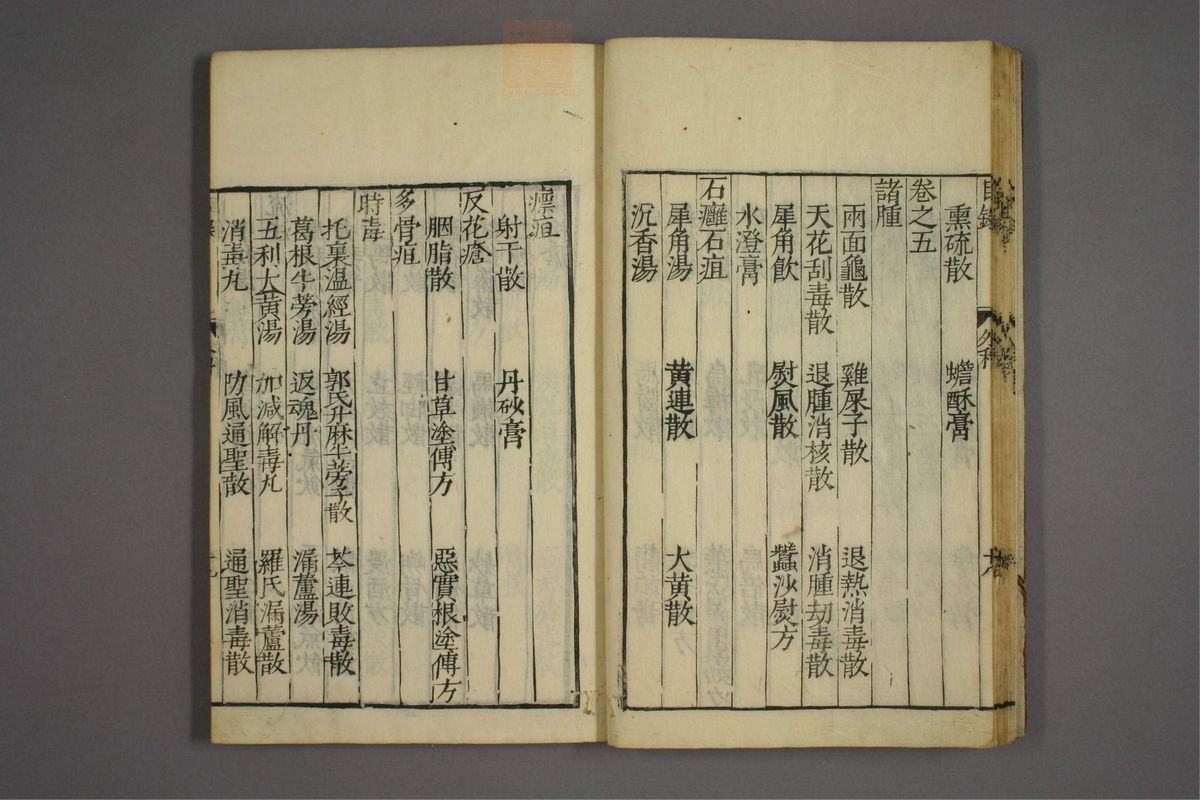 目錄 外科
熏硫散 蟾酥膏
卷之五
諸腫
兩面龜散 雞屎子散 退熱消毒散
天花刮毒散 退腫消核散 消腫刼毒散
犀角飲 熨風散 蠶沙熨方
水澄膏
石癰石疽
犀角湯 黃連散 大黃散
沉香湯
瘭疽
射干散 丹砂膏
反花瘡
胭脂散 甘草塗傅方 惡實根塗傅方
多骨疽
時毒
托裏温經湯 郭氏升麻牛蒡子散 芩連敗毒散
葛根牛蒡湯 返魂丹 漏蘆湯
五利大黃湯 加減解毒丸 羅氏漏蘆散
消毒丸 防風通聖散 通聖消毒散